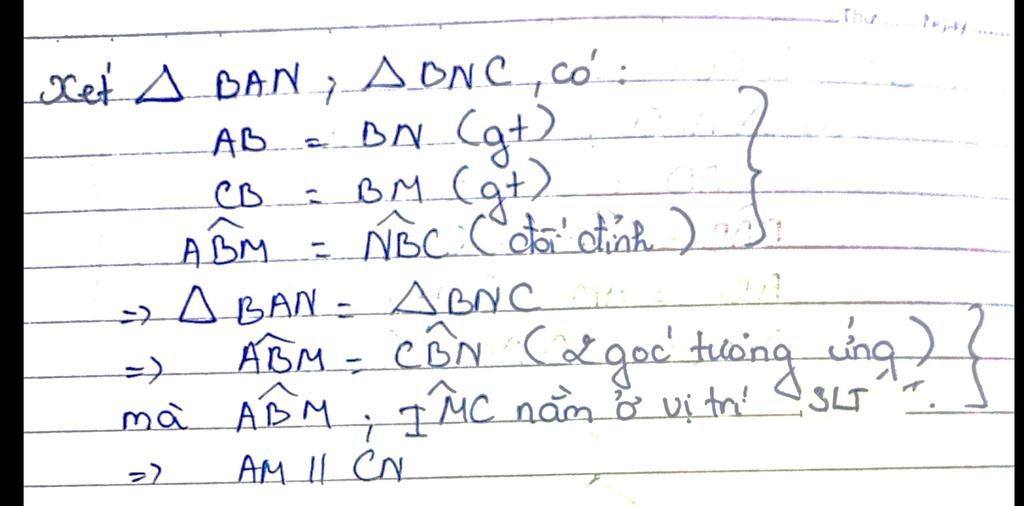 Thứ ..... Ngày ......
Xét △ BAN ; △ BNC , có :
AB = BN (gt)
CB = BM (gt)
AB̂M = NB̂C (đối đỉnh)
=> △ BAN = △BNC
=> AB̂M = CB̂N (2 góc tương ứng)
mà AB̂M ; IM̂C nằm ở vị trí "SLT".
=> AM || CN